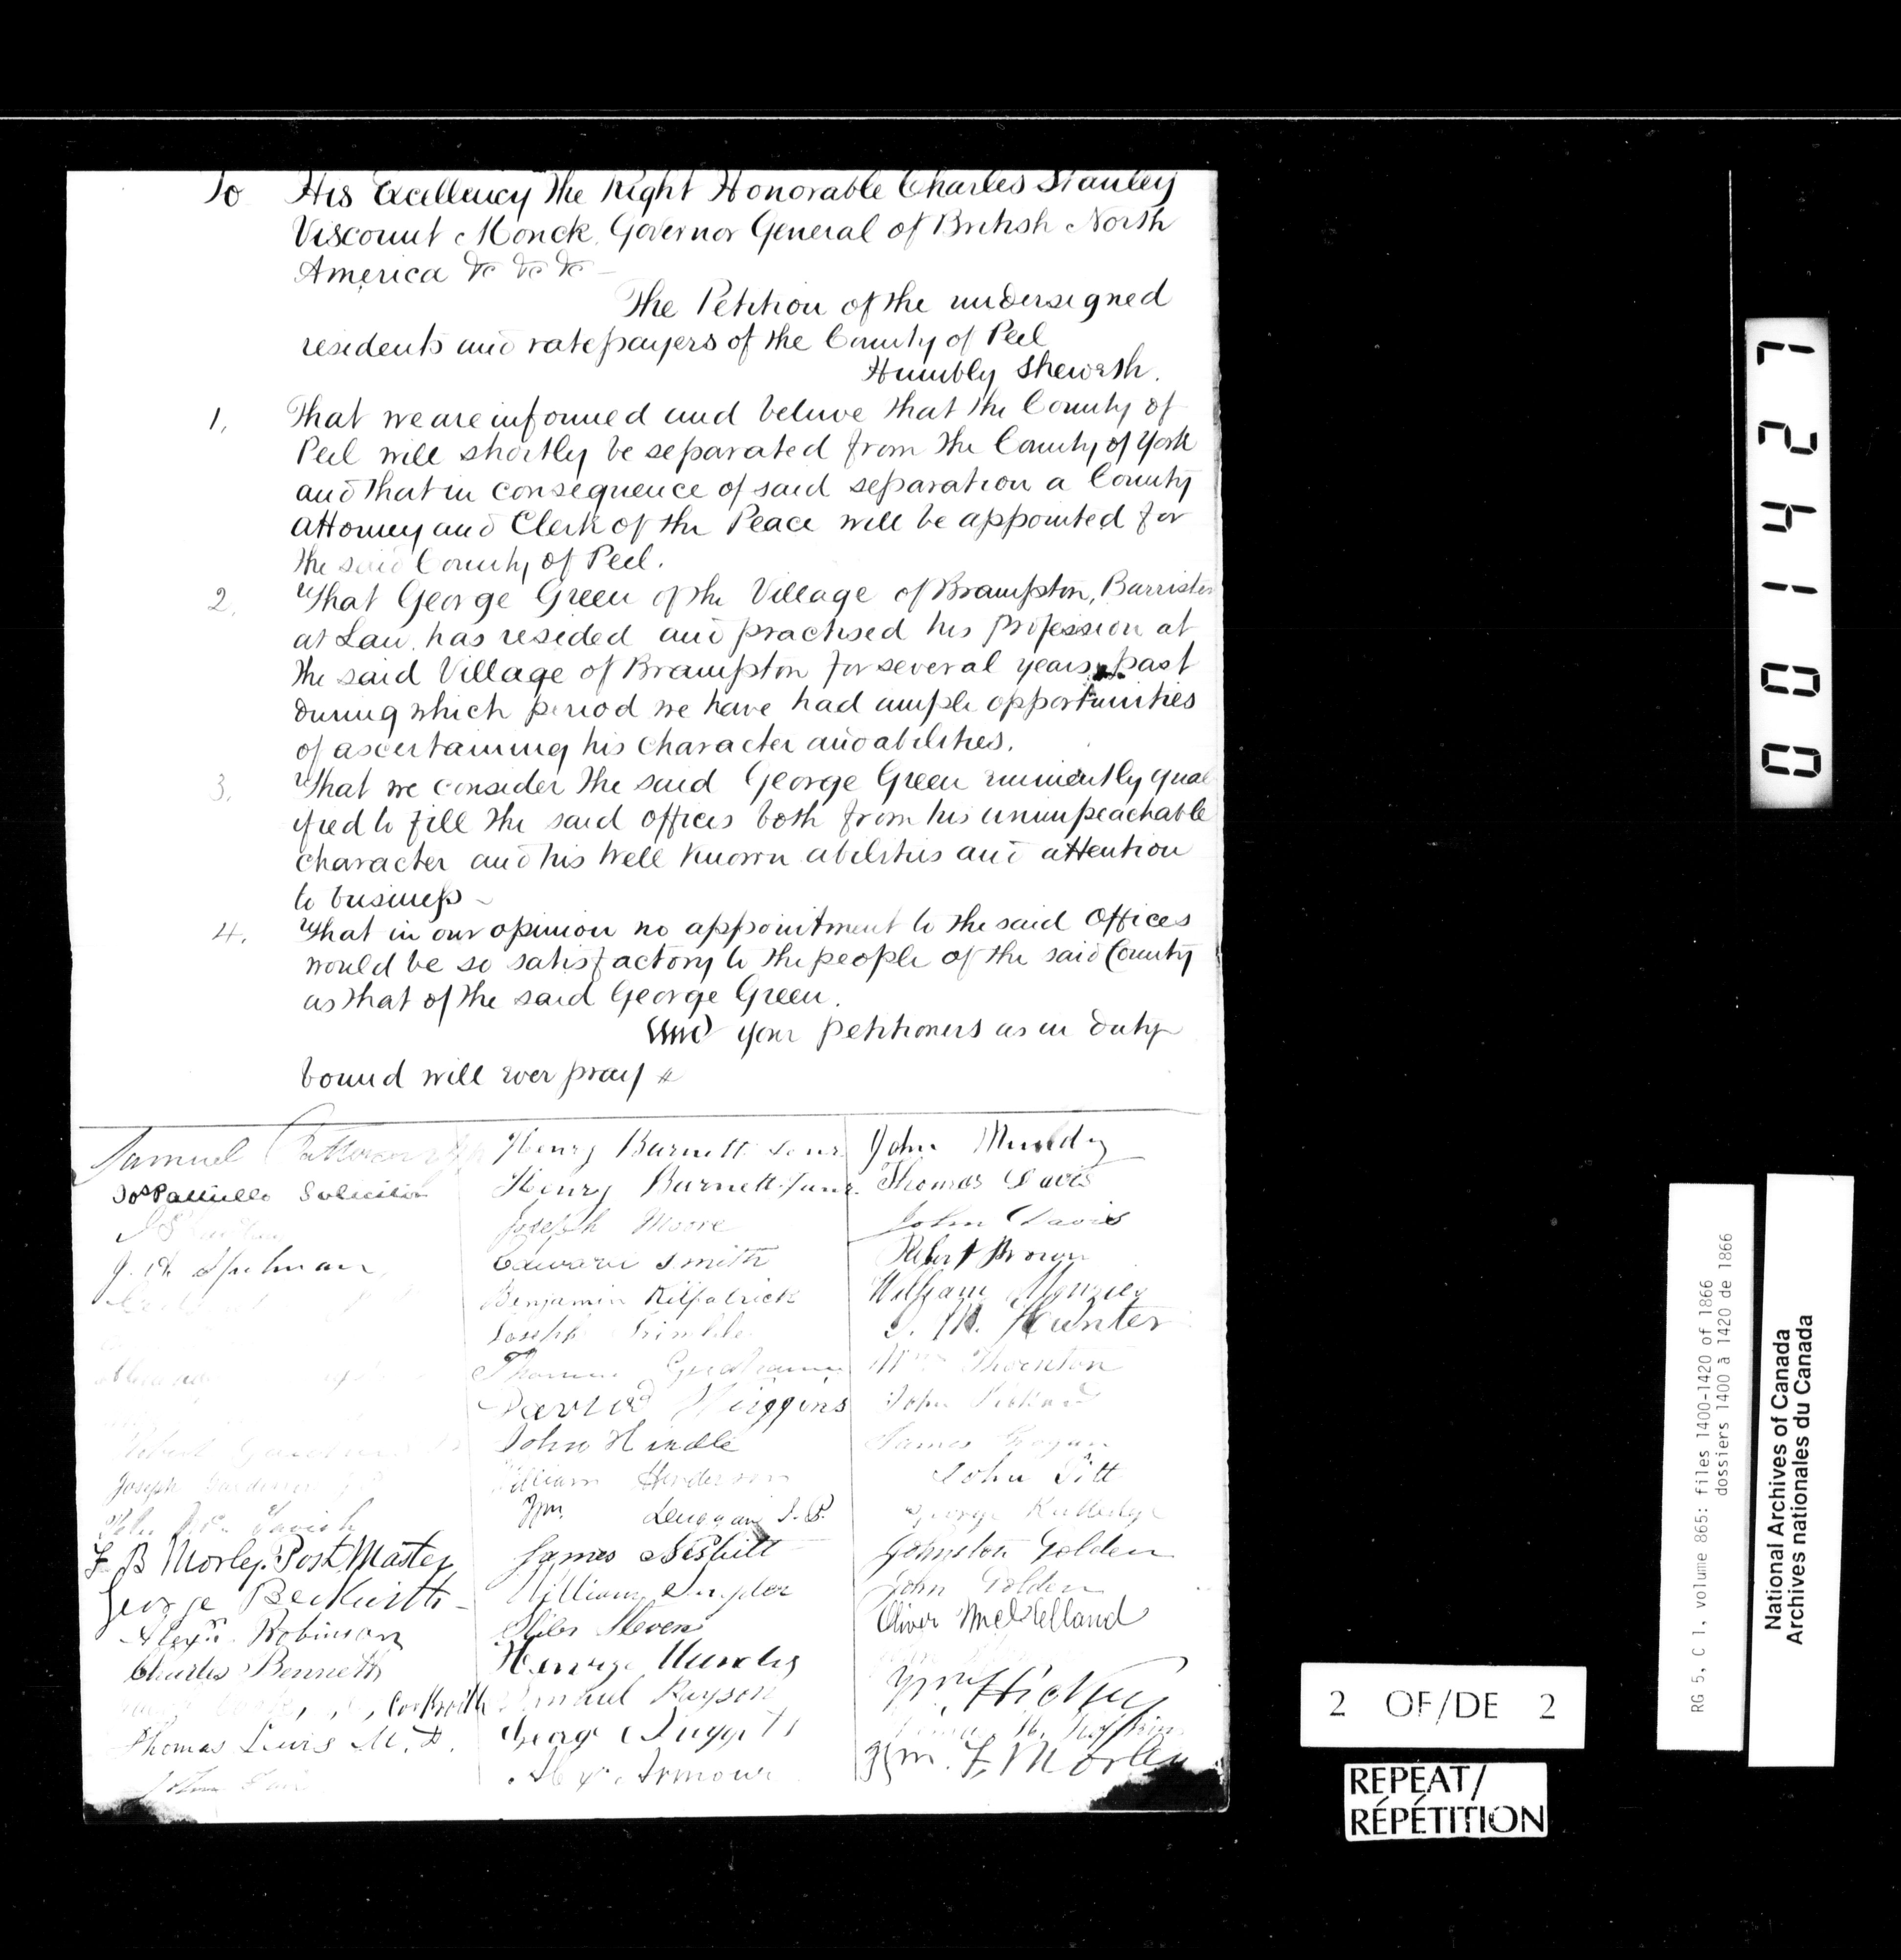 To His Excellency The Right Honorable Charles Stanley
Viscount Monck, Governor General of British North
America &c &c &c
The Petition of the undersigned
residents and ratepayers of the County of Peel
Humbly Sheweth.
1. That we are informed and believe that the County of
Peel will shortly be separated from the County of York
and that in consequence of said separation a County
Attorney and Clerk of the Peace will be appointed for
the said County of Peel.
2. That George Green of the Village of Brampton, Barrister
at Law, has resided and practised his profession at
the said Village of Brampton for several years past
during which period we have had ample opportunities
of ascertaining his character and abilities.
3. That we consider the said George Green eminently qual
ified to fill the said offices both from his unimpeachable
character and his well known abilities and attention
to business
4. That in our opinion no appointment to the said Offices
would be so satisfactory to the people of the said County
as that of the said George Green.
And your petitioners as in duty
bound will ever pray
Samuel
Solicitor
F B Morley. Post Master
George Beckwith
Alexr. Robinson
Charles Bennett
Thomas Lewis M.D.
Henry Burnett Senr.
Henry Burnett Junr.
Joseph Moore
Edward Smith
Benjamin Kilpatrick
Joseph Trimble
Thomas
David Wiggins
John Hindle
William Henderson
Wm.
James Nesbitt
William Snyder
Stevens
Samuel Rayson
George
Alexr. Armour
John Mundey
Thomas Davis
John Davis
Robert Brown
William Menzies
Hunter
Wm Thornton
John
James Grogan
John Pitt
George
Johnston Golden
John Golden
Oliver McClelland
Wm Hickey
Wm. F. Morley
0 0 1 4 2 7
2 OF/DE 2
REPEAT/
RÉPÉTITION
RG 5, C 1, volume 865: files 1400-1420 of 1866
dossiers 1400 à 1420 de 1866
National Archives of Canada
Archives nationales du Canada